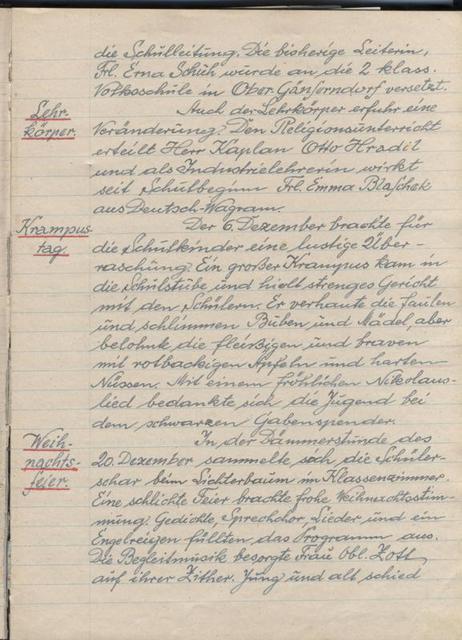 die Schulleitung. Die bisherige Leiterin,
Frl. Erna Schuh wurde an die 2 klass.
Volksschule in Ober Gänserndorf versetzt.
Lehr-
körper.
Auch der Lehrkörper erfuhr eine
Veränderung. Den Religionsunterricht
erteilt Herr Kaplan Otto Hradil
und als Industrielehrerin wirkt
seit Schulbeginn Frl. Emma Blaschek
aus Deutsch-Wagram.
Krampus-
tag.
Der 6. Dezember brachte für
die Schulkinder eine lustige Über-
raschung. Ein großer Krampus kam in
die Schulstube und hielt strenges Gericht
mit den Schülern. Er verhaute die faulen
und schlimmen Buben und Mädel, aber
belohnte die fleißigen und braven
mit rotbackigen Äpfeln und harten
Nüssen. Mit einem fröhlichen Nikolaus-
lied bedankte sich die Jugend bei
dem schwarzen Gabenspender.
Weih-
nachts-
feier.
In der Dämmerstunde des
20. Dezember sammelte sich die Schüler-
schar beim Lichterbaum im Klassenzimmer.
Eine schlichte Feier brachte frohe Weihnachtsstim-
mung. Gedichte, Sprechchor, Lieder und ein
Engelreigen füllten das Programm aus.
Die Begleitmusik besorgte Frau Obl. Zott
auf ihrer Zither. Jung und alt schied